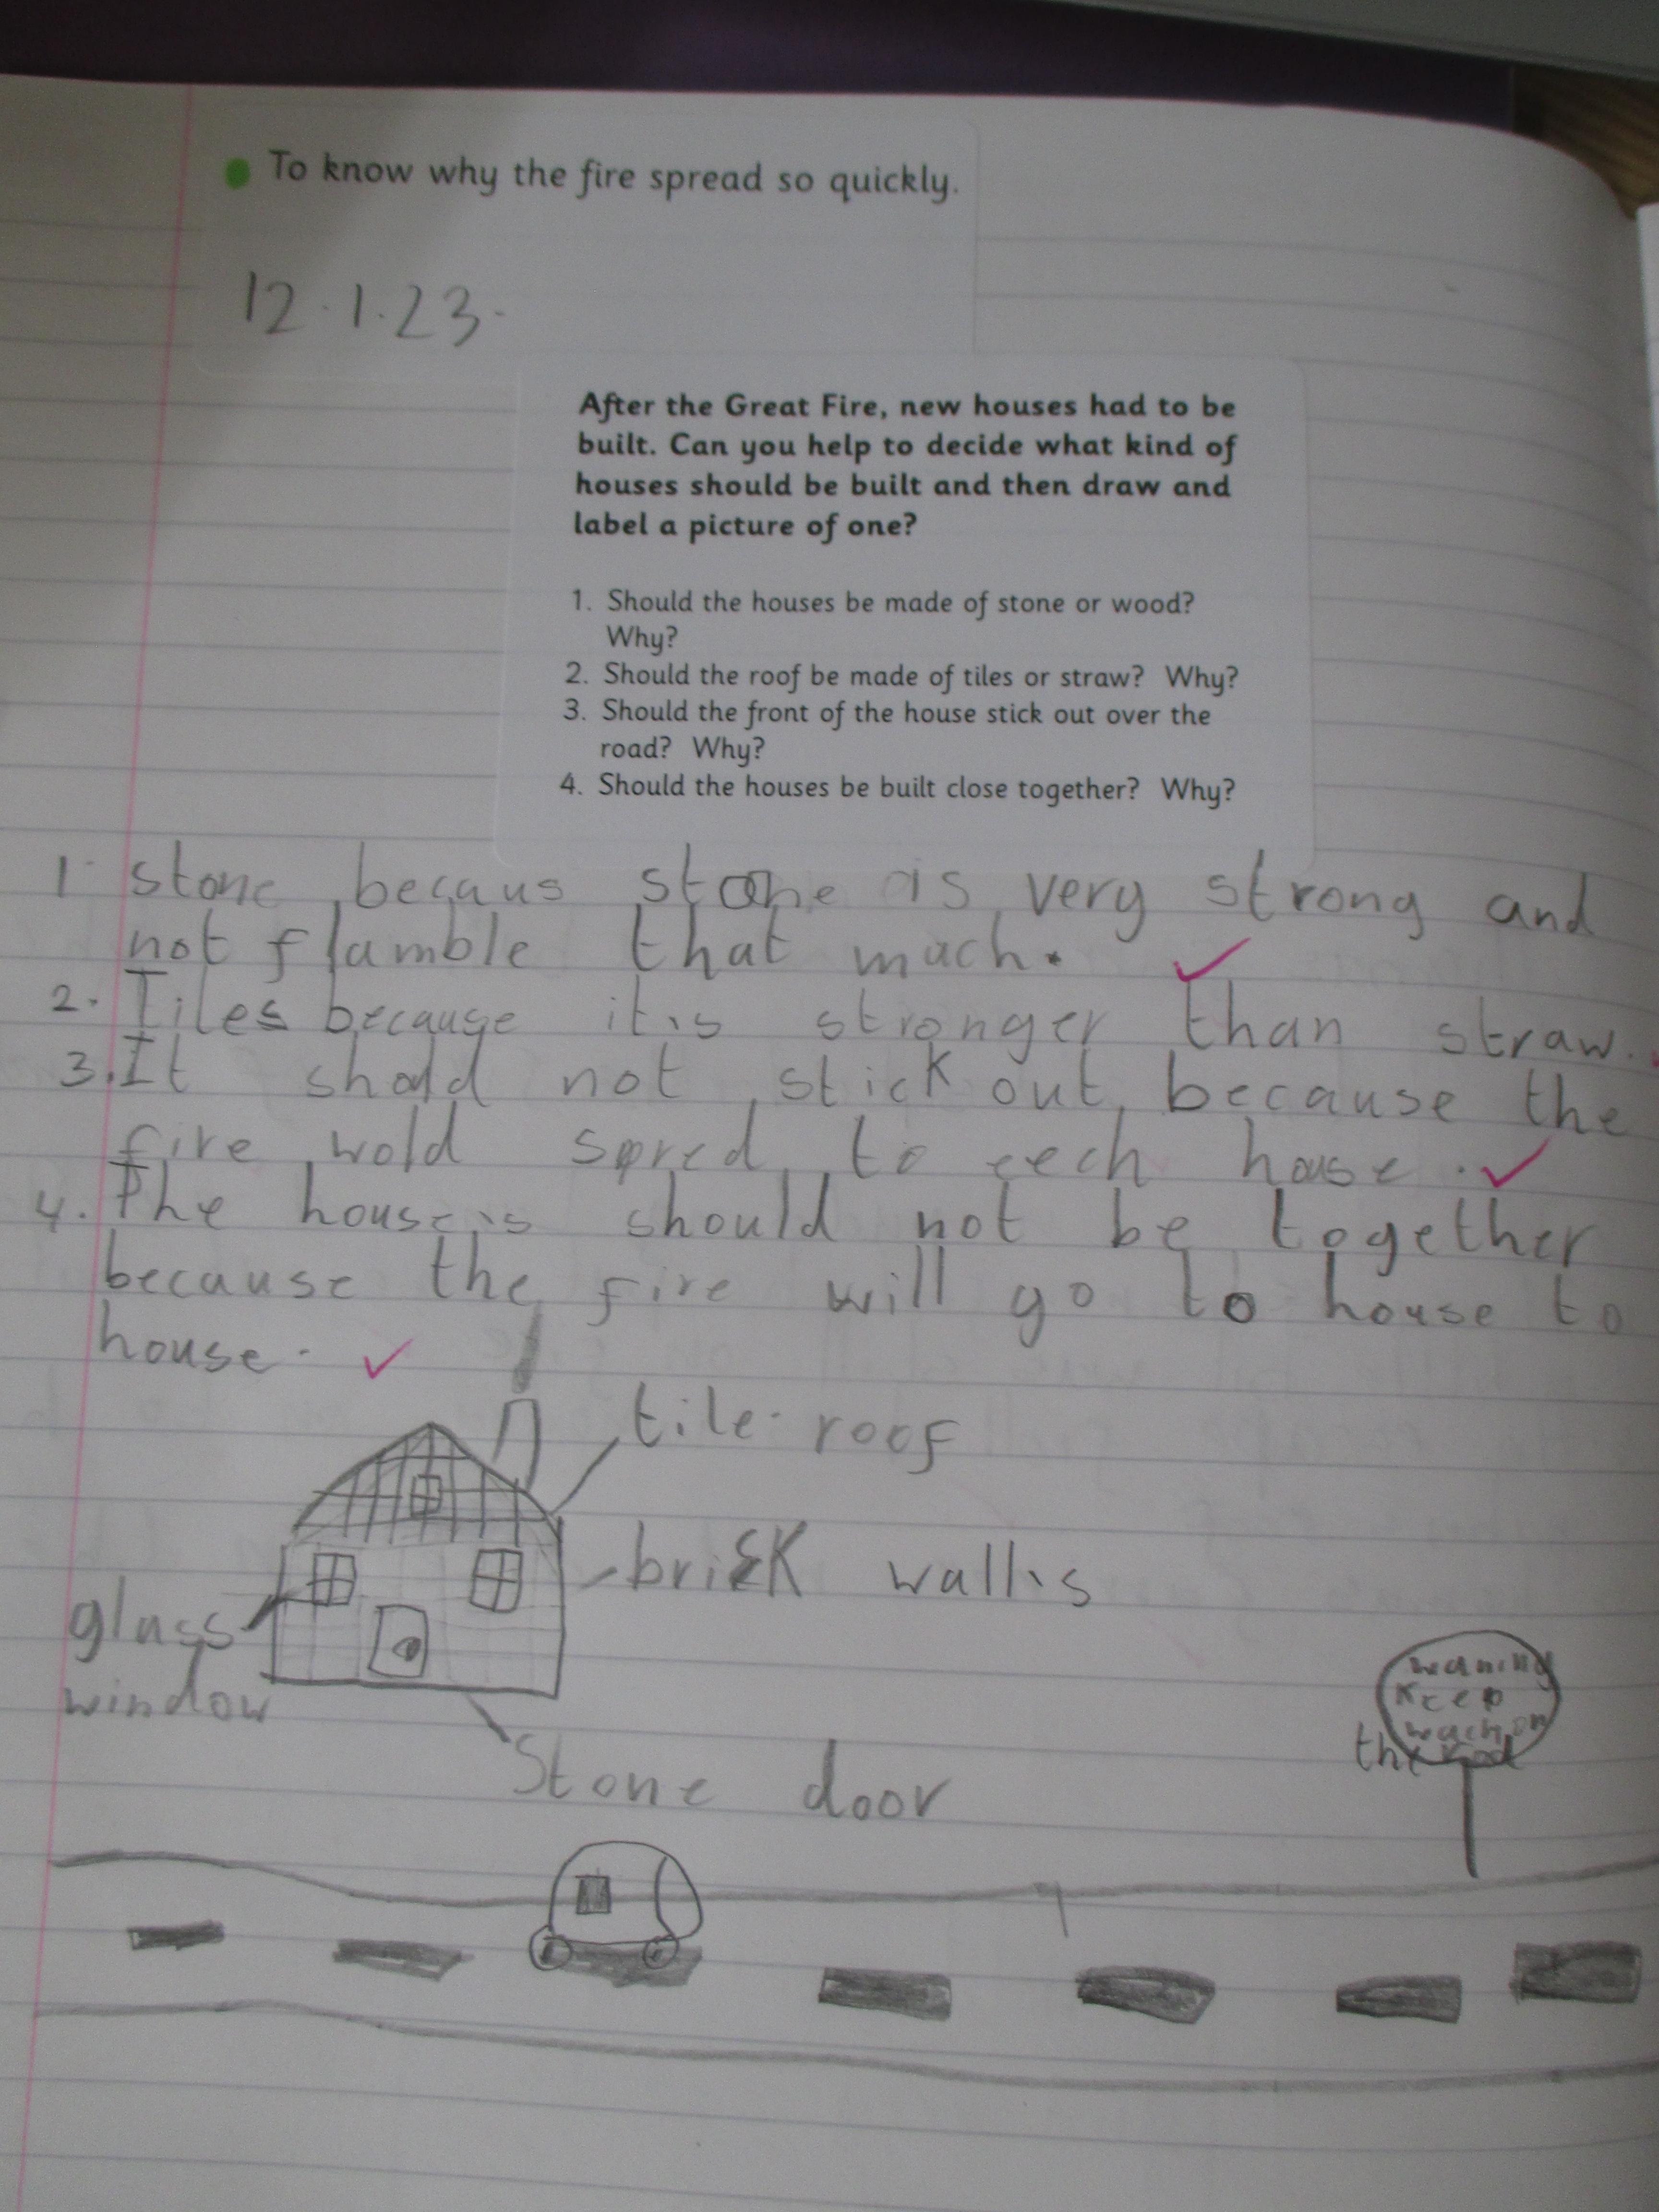 To know why the fire spread so quickly.
12.1.23.
After the Great Fire, new houses had to be
built. Can you help to decide what kind of
houses should be built and then draw and
label a picture of one?
1. Should the houses be made of stone or wood?
Why?
2. Should the roof be made of tiles or straw? Why?
3. Should the front of the house stick out over the
road? Why?
4. Should the houses be built close together? Why?
1 stone becaus stone is very strong and
not flamble that much.
2. Tiles because it is stronger than straw.
3. It shold not stick out because the
fire wold spred to eech house.
4. The houseis should not be together
because the fire will go to house to
house.
tile roof
brick wallis
glass
window
Stone door
waning
Keep
wach on
the rod